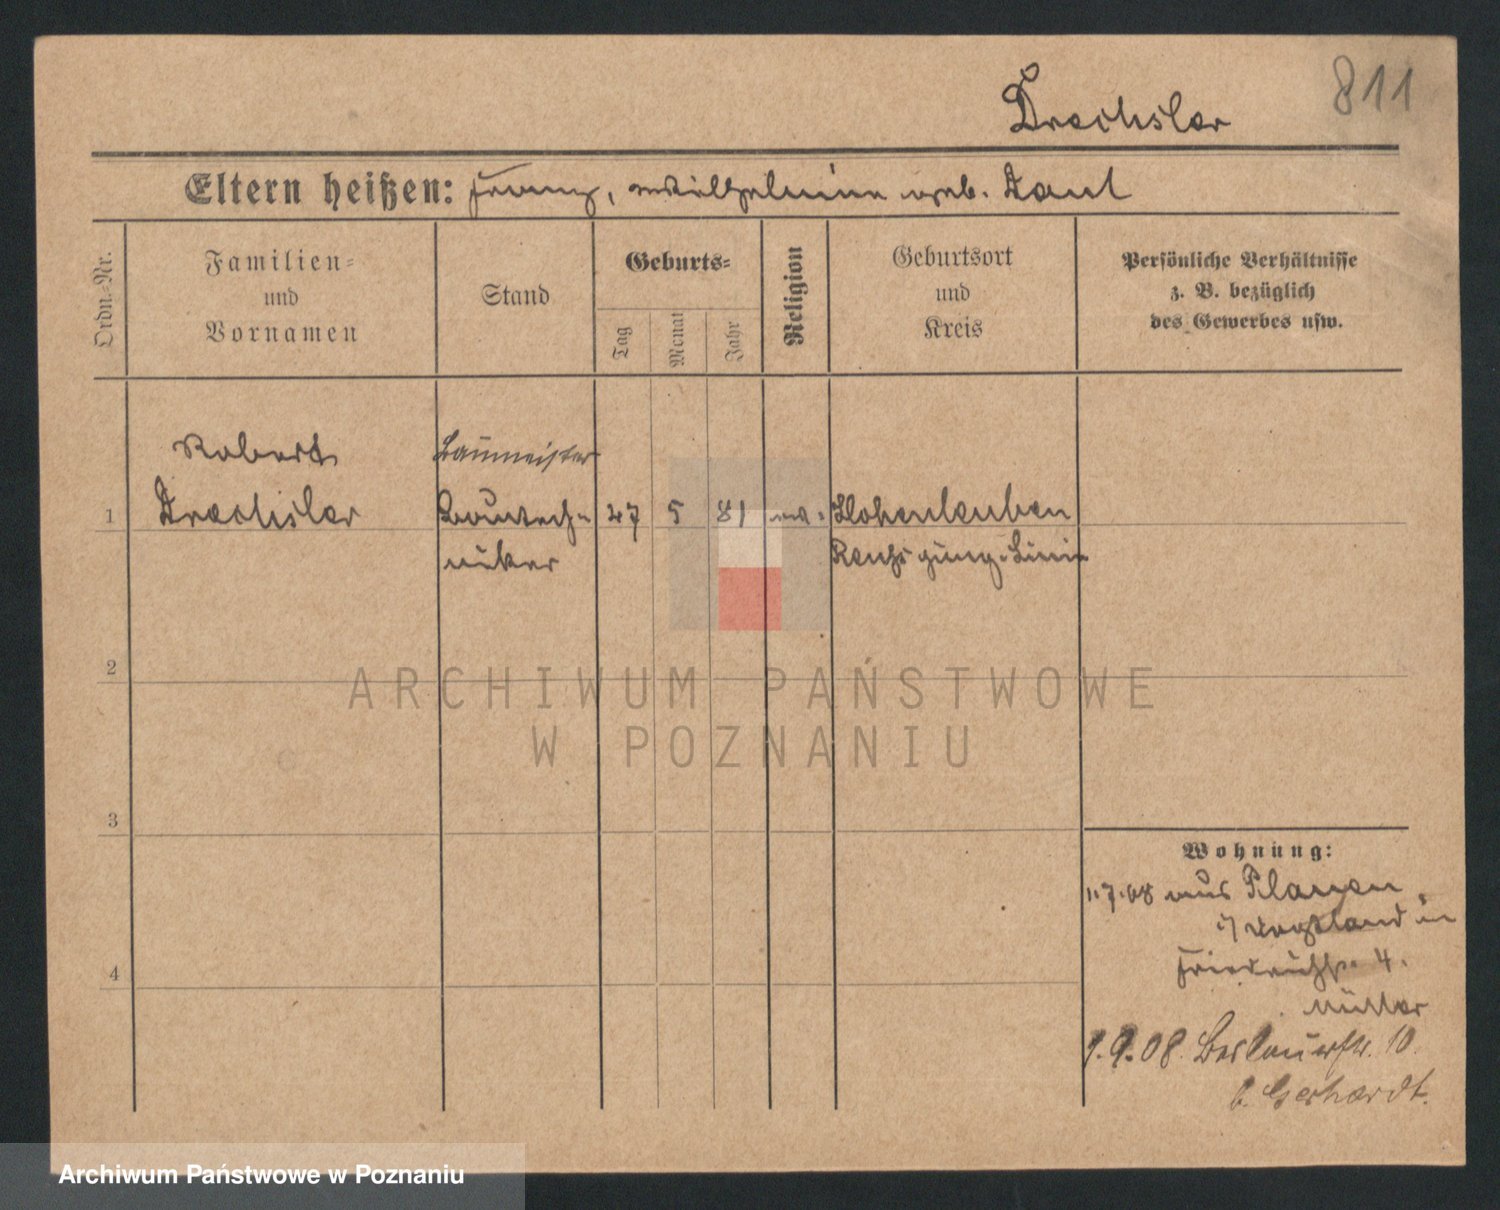 811
Drechsler
Eltern heißen: Franz, Wilhelmine geb. Daut
Ordn.-Nr.
Familien-
und
Vornamen
Stand
Geburts-
Tag
Monat
Jahr
Religion
Geburtsort
und
Kreis
Persönliche Verhältnisse
z. B. bezüglich
des Gewerbes usw.
Robert
Baumeister
1 Drechsler Bautech- 27 5 81 ev. Hohenleuben
niker Reuß jüng. Linie
2
ARCHIWUM PAŃSTWOWE
W POZNANIU
3
Wohnung:
1.7.08 aus Plauen
i/ Vogtland in
4 Friedrichstr. 4.
Müller
1.9.08. 10.
b. Gerhardt.
Archiwum Państwowe w Poznaniu